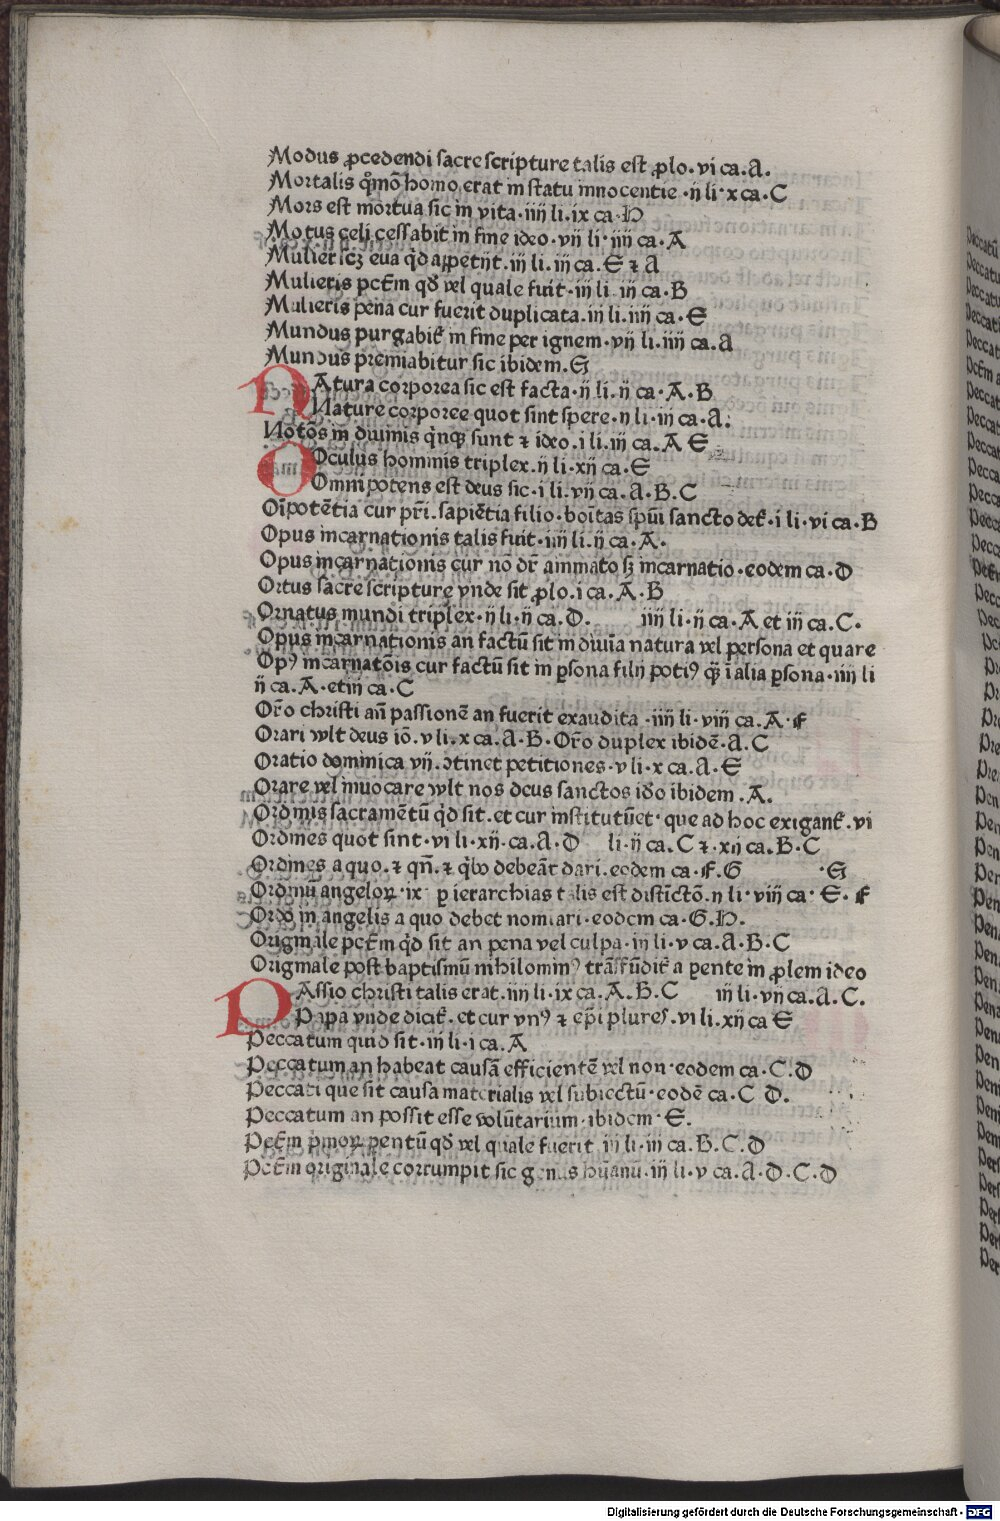 Modus ꝓcedendi sacre scripture talis est ꝓlo. vi ca. A.
Mortalis qͦmō homo erat in statu innocentie . ij li . x ca . C
Mors est mortua sic in vita . iiij li . ix ca . H
Motus celi cessabit in fine ideo . vij li . iiij ca . A
Mulier scꝫ eua qd̕ appetijt . iij li . iij ca . E ⁊ A
Mulieris pctm̄ qd̕ vel quale fuit . iij li . iij ca . B
Mulieris pena cur fuerit duplicata . iij li . iiij ca . E
Mundus purgabit᷑ in fine per ignem . vij li . iiij ca . A
Mundus premiabitur sic ibidem . G
NAtura corporea sic est facta . ij li . ij ca . A . B
Nature corporee quot sint spere . ij li . iij ca . A .
Notōs in diuinis qͥnqꝫ sunt ⁊ ideo . i li . iij ca . A E
OOculus hominis triplex . ij li . xij ca . E
Omnipotens est deus sic . i li . vij ca . A . B . C
Oīpotētia cur pr̄i . sapiētia filio . boītas spūi sancto det᷑ . i li . vi ca . B
Opus incarnationis talis fuit . iiij li . ij ca . A .
Opus incarnationis cur nō dr̄ animatio sꝫ incarnatio . eodem ca . D
Ortus sacre scripture vnde sit ꝓlo . i ca . A . B
Ornatus mundi triplex . ij li . ij ca . D . iiij li . ij ca . A et iij ca . C .
Opus incarnationis an factū sit in diuīa natura vel persona et quare
Opꝰ incarnatōis cur factū sit in ꝑsona filij potiꝰ qͣ̄ ī alia ꝑsona . iiij li
ij ca . A . et iij ca . C
Or̄o christi an̄ passionē an fuerit exaudita . iiij li . viij ca . A . F
Orari vult deus iō . v li . x ca . A . B . Or̄o duplex ibidē . A . C
Oratio dominica vij . ꝯtinet petitiones . v li . x ca . A . E
Orare vel inuocare vult nos deus sanctos iđo ibidem . A .
Ordinis sacramētū qd̕ sit . et cur institutū et que ad hoc exigant᷑ . vi
Ordines quot sint . vi li . xij . ca . A . D li . ij ca . C ⁊ . xij ca . B . C
Ordines a quo . ⁊ qn̄ . ⁊ qͥbꝫ debeāt dari . eodem ca . F . G . G
Ordinū angeloꝝ . ix . ꝑ ierarchias talis est distīctō . ij li . viij ca . E . F
Ordo in angelis a quo debet nomīari . eodem ca . G . H .
Originale pctm̄ qd̕ sit an pena vel culpa . iij li . v ca . A . B . C
Originale post baptismū nihilominꝰ trāsfūdit᷑ a ꝑente in ꝓlem ideo
PAssio christi talis erat . iiij li . ix ca . A . B . C iij li . vij ca . A . C .
Papa vnde dicit᷑ . et cur vnꝰ ⁊ epī plures . vi li . xij ca E
Peccatum quid sit . iij li . i ca . A
Peccatum an habeat causā efficientē vel non . eodem ca . C . D
Peccati que sit causa materialis vel subiectū . eodē ca . C D .
Peccatum an possit esse volūtarium . ibidem . E .
Pctm̄ pͥmoꝝ pentū qd̕ vel quale fuerit iij li . iij ca . B . C . D
Pctm̄ originale corrumpit sic genus hūanū . iij li . v ca . A . D . C . D
Digitalisierung gefördert durch die Deutsche Forschungsgemeinschaft - DFG